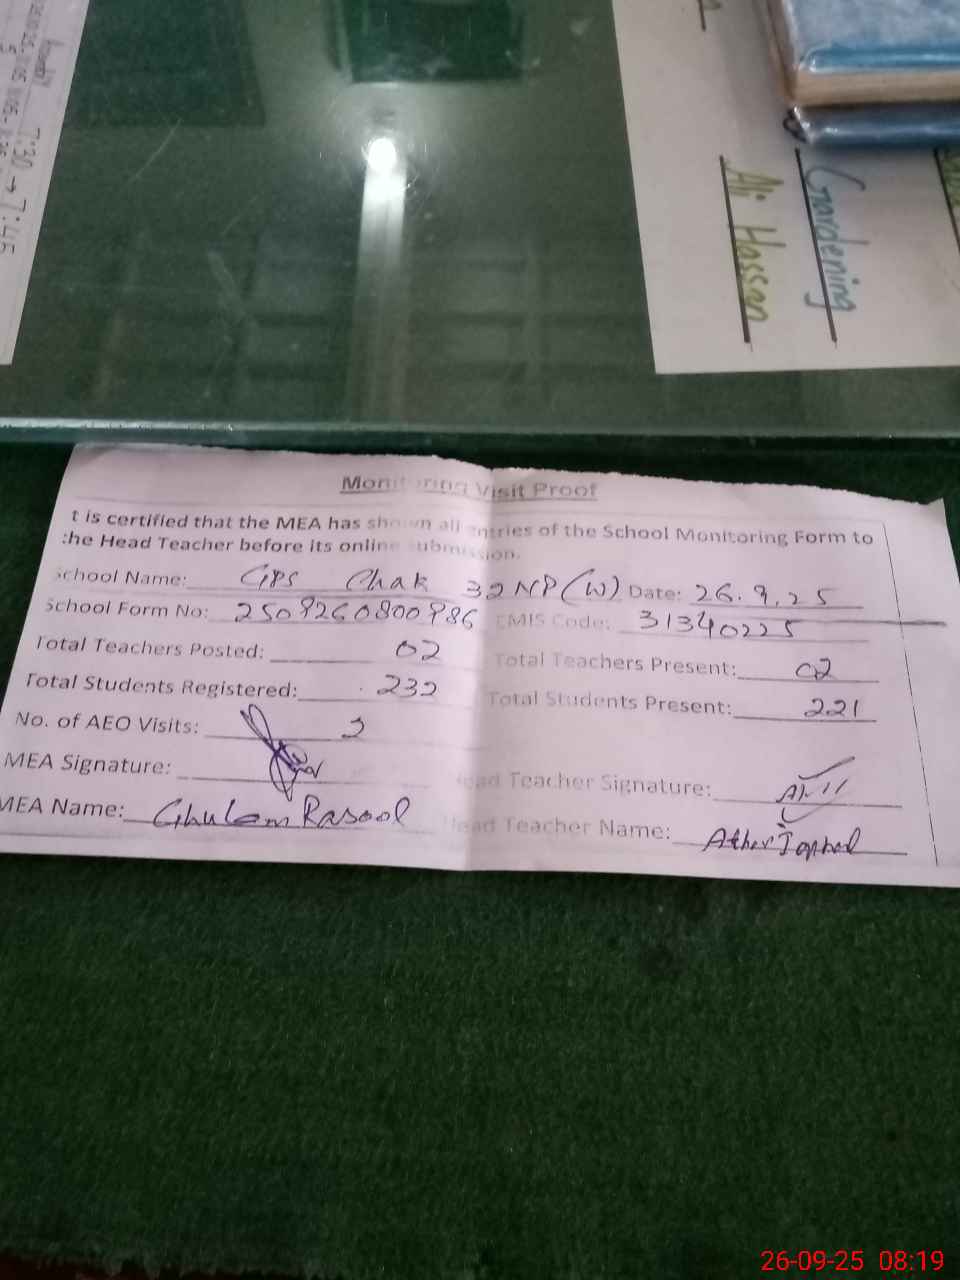 7:30 → 7:45
Gardening
Ali Hassan
Monitoring Visit Proof
t is certified that the MEA has shown all entries of the School Monitoring Form to
the Head Teacher before its online submission.
School Name: GPS Chak 32NP(W) Date: 26.9.25
School Form No: 2509260800986 EMIS Code: 31340225
Total Teachers Posted: 02 Total Teachers Present: 02
Total Students Registered: 232 Total Students Present: 221
No. of AEO Visits: 2
MEA Signature: Head Teacher Signature:
MEA Name: Ghulam Rasool Head Teacher Name: Ather Iqbal
26-09-25 08:19